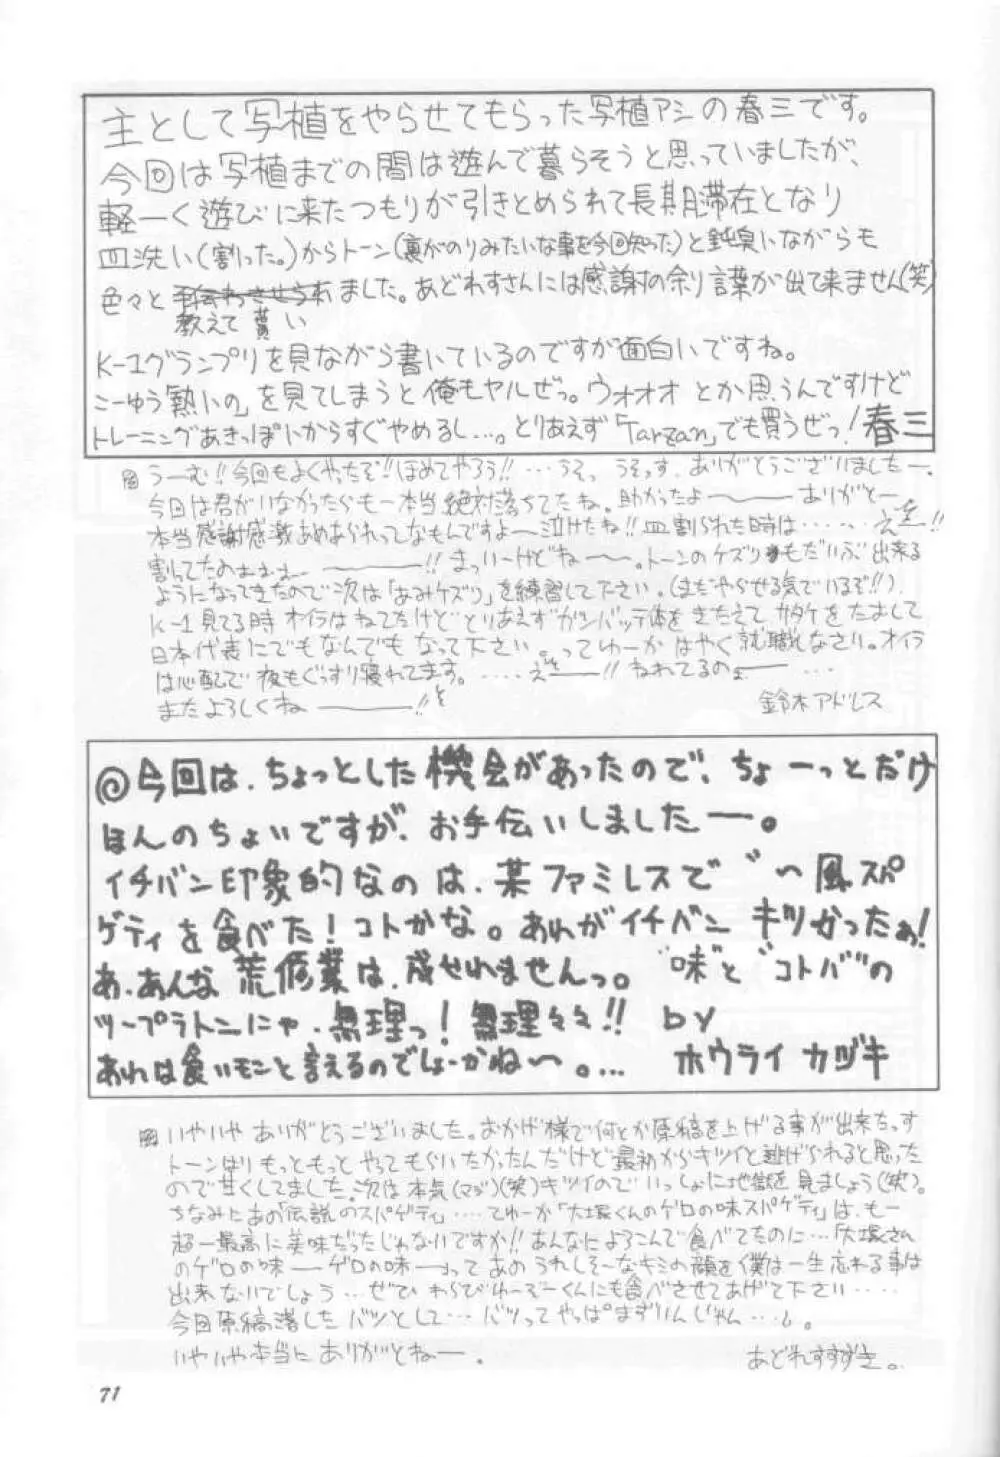 主として写植をやらせてもらった写植アシの春三です。
今回は写植までの間は遊んで暮らそうと思っていましたが、
軽ーく遊びに来たつもりが引きとめられて長期滞在となり
皿洗い(割った。)からトーン(裏がのりみたいな事を今回知った)と鈍臭いながらも
色々と教えて貰いました。あどれすさんには感謝の余り言葉が出て来ません(笑)
K-1グランプリを見ながら書いているのですが面白いですね。
こーゆう「熱いの」を見てしまうと俺もヤルぜっ。ウォオオ とか思うんですけど
トレーニングあきっぽいからすぐやめるし…。とりあえず「Tarzan」でも買うぜっ! 春三
うーむ!!今回もよくやったぞ!!ほめてやろう!!…うそっ うそっす。ありがとうございましたー。
今回は君がいなかったらもー本当絶対落ちてたね。助かったよ――― ありがとー
本当感謝感激あめあられってなもんですよ〜泣けたね!!皿割られた時は……
割ってたのぉぉぉ―――!!まっいーけどねー〜。トーンのケズリもだいぶ出来る
ようになってきたので次は「あみケズリ」を練習して下さい。(まだやらせる気でいるぞ!!)
K-1見てる時オイラはねてたけどとりあえずガンバッテ体をきたえてサタケをたまして
日本代表にでもなんでもなって下さい。ってゆーかはやく就職しなさい。オイラ
は心配で夜もぐっすり寝れてます。……え――!!ねれてるのぉ―― …
またよろしくね ―――!!と
鈴木アドレス
@今回は、ちょっとした機会があったので、ちょーっとだけ
ほんのちょいですが、お手伝いしましたー。
イチバン印象的なのは、某ファミレスで〝〜風スパ
ゲティを食べた!コトかな。あれがイチバン キツかったぁ!
あ、あんな荒修業は、成せれませんっ。〝味〟と〝コトバ〟の
ツープラトンにゃ、無理っ!無理々々!! by
あれは食いモンと言えるのでしょーかね〜。… ホウライ カヅキ
いやいやありがとうございました。おかげ様で何とか原稿を上げる事が出来たっす
トーンはりもっともっとやってもらいたかったんだけど最初からキツイと逃げられると思った
ので甘くしてました。次は本気(マジ)(笑)キツイのでいっしょに地獄を見ましょう(笑)。
ちなみにあの「伝説のスパゲティ」……てゆーか「大塚くんのゲロの味スパゲティ」は、もー
超ー最高に美味だったじゃないですか!!あんなによろこんで食べてたのに…「大塚さん
のゲロの味ー ゲロの味ー」ってあのうれしそーなキミの顔を僕は一生忘れる事は
出来ないでしょう…ぜひわらびゆーぞーくんにも食べさせてあげて下さい……
今回原稿落したバツとして…バツってやっぱまずいんじゃん…。
いやいや本当にありがとねー。
あどれすすずき。
71